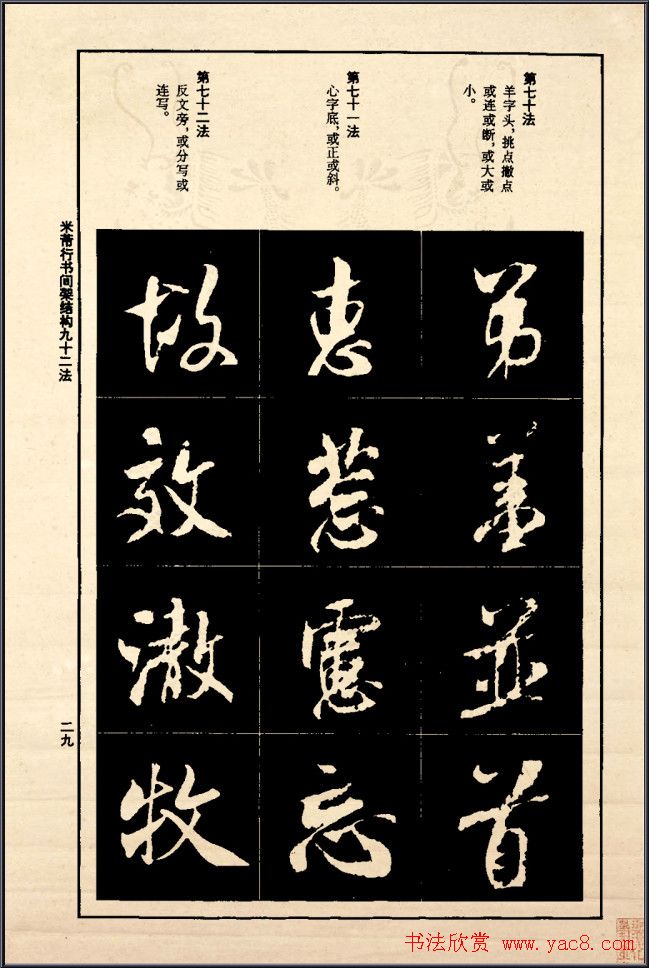 第七十法
羊字头，挑点撇点
或连或断，或大或
小。
弟
並
首
第七十一法
心字底，或正或斜。
惠
惹
忘
第七十二法
反文旁，或分写或
连写。
故
效
澈
牧
米芾行书间架结构九十二法
二九
书法欣赏 www.yac8.com